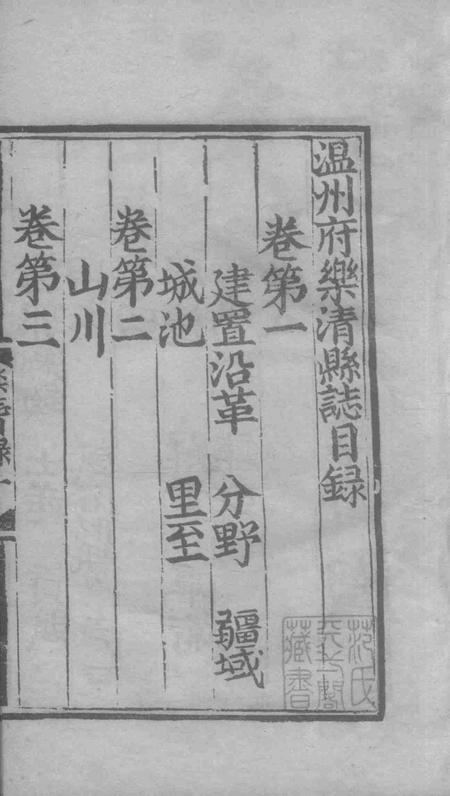 温州府樂清縣誌目録
卷第一
建置沿革 分野 疆域
城池 里至
卷第二
山川
卷第三